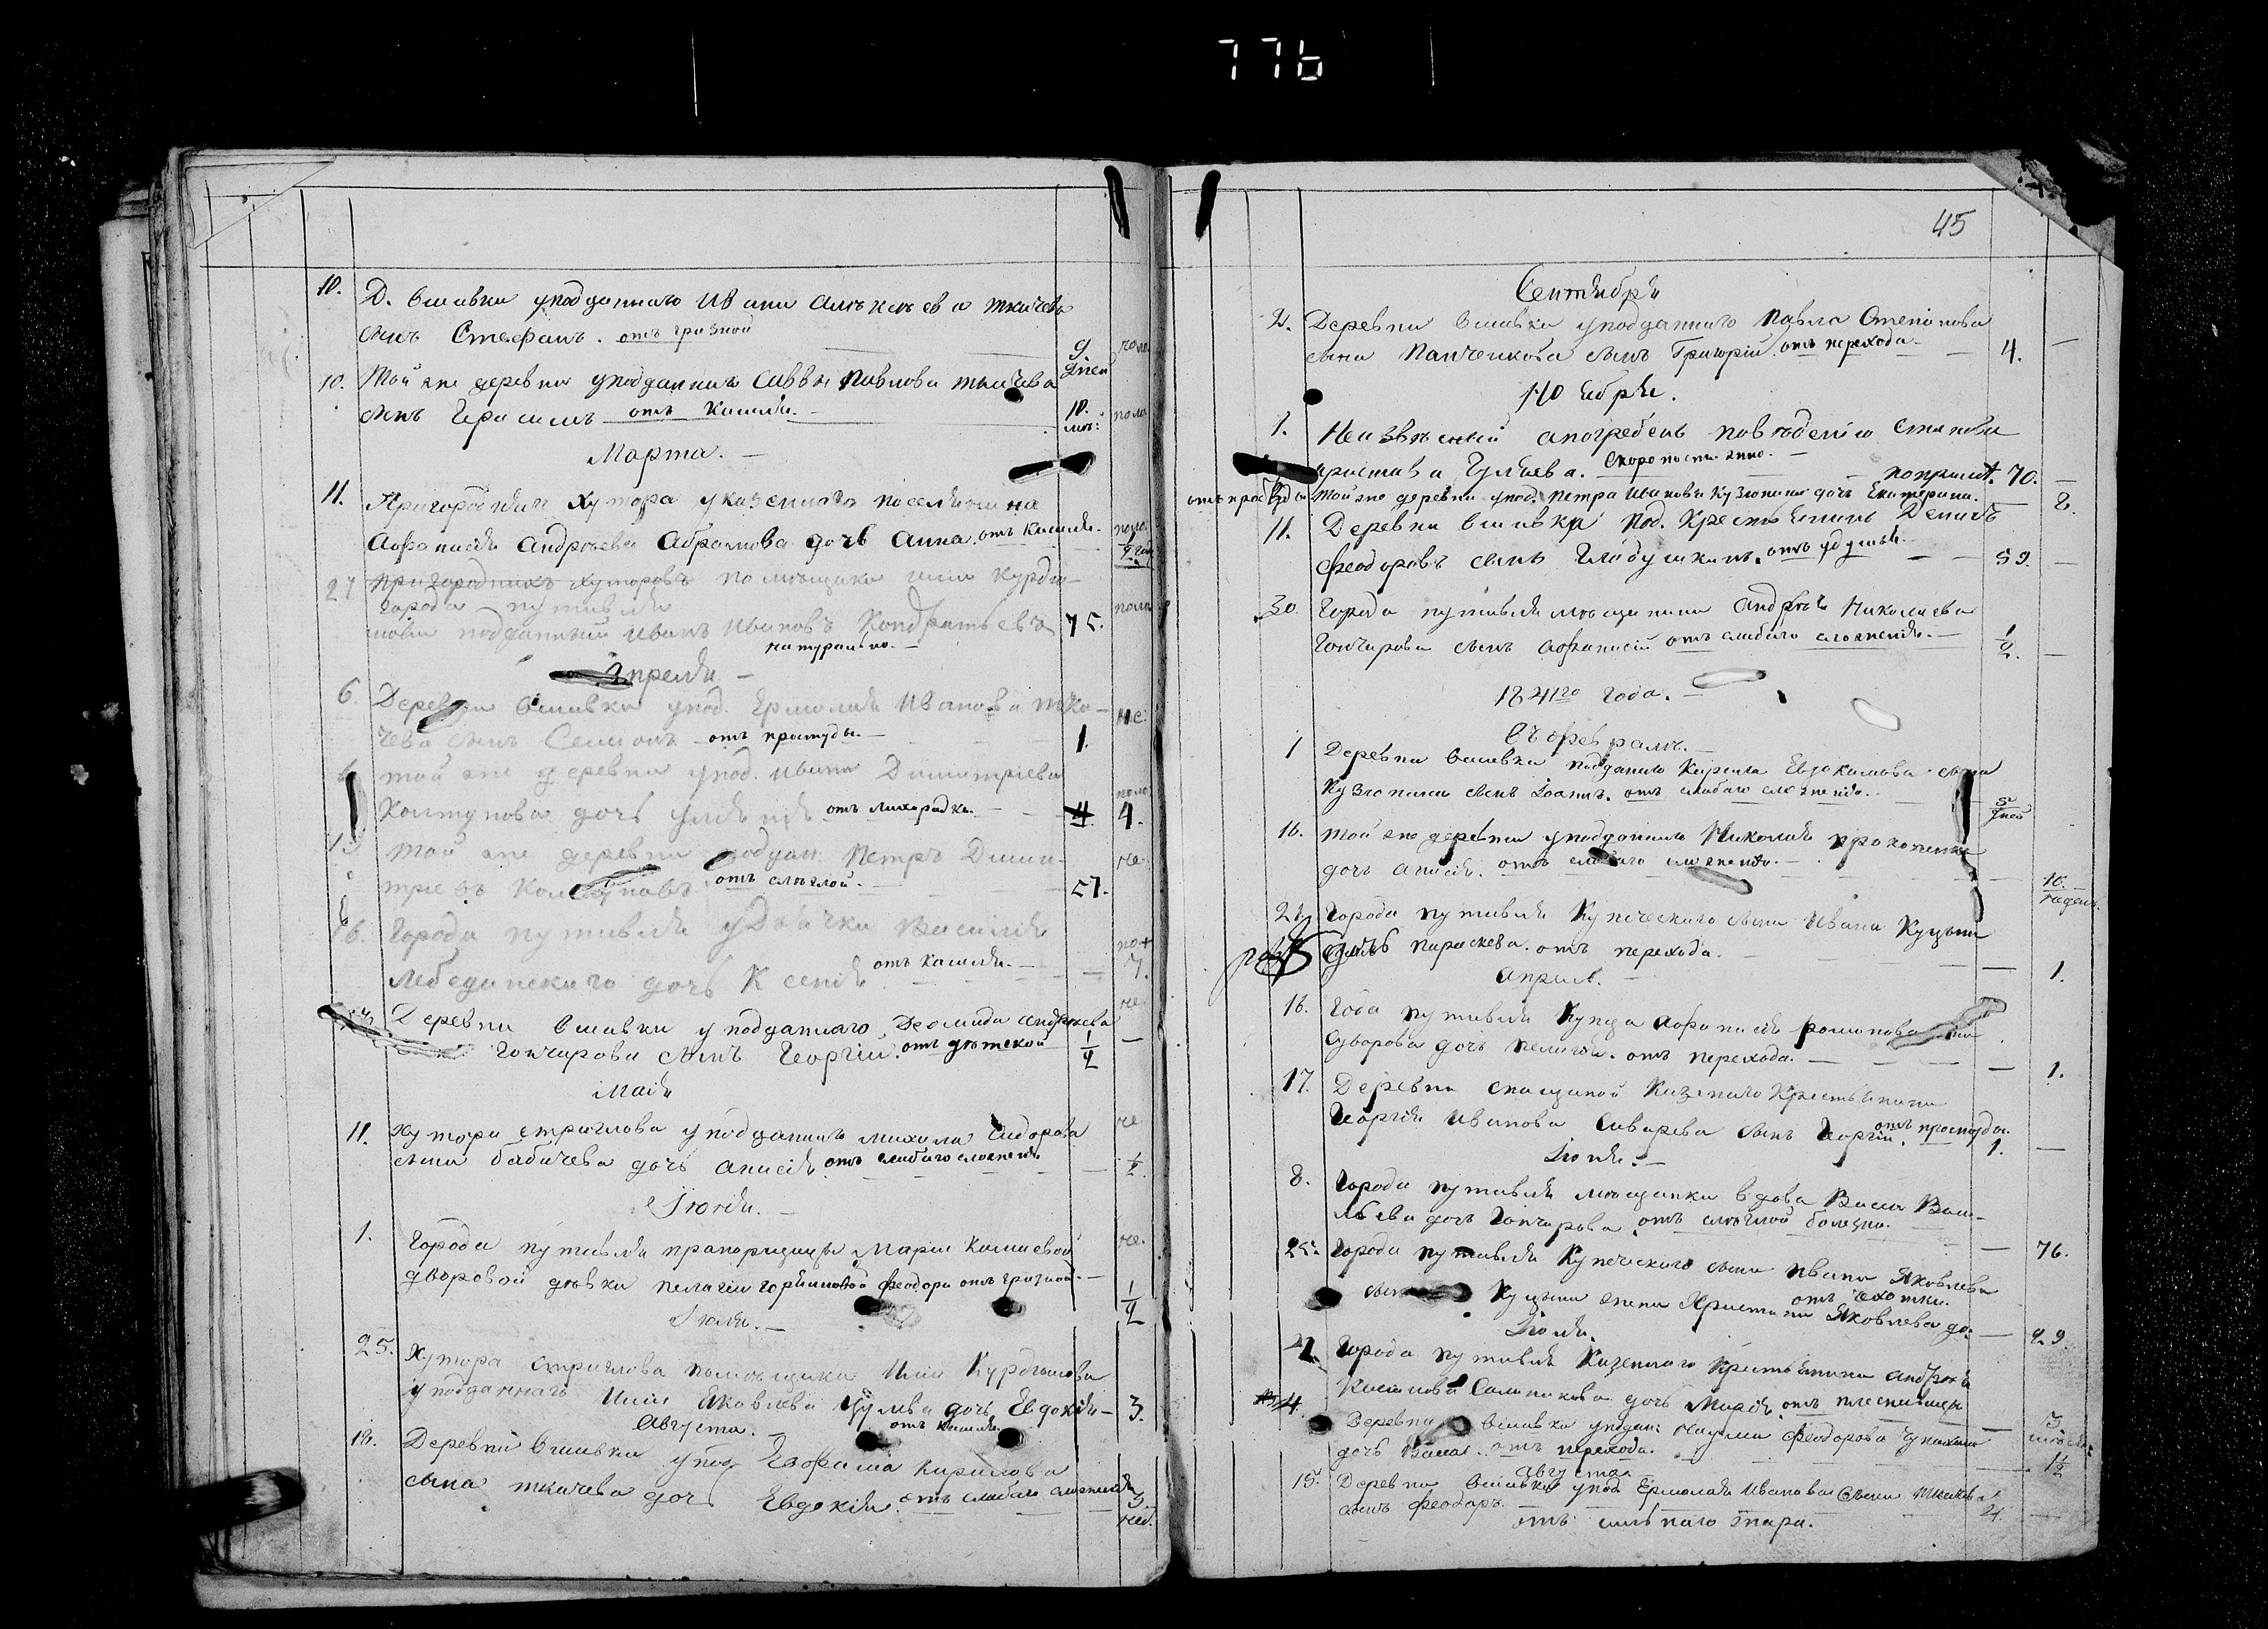 776
10. Д. Вшивки уподданнаго Ивана Алексѣева Ткачева
сынъ Стефанъ. отъ грызной
9 дней
10. Той же деревни уподданнаго Саввы Павлова Ткачева
сынъ Герасимъ отъ кашля.
10. мѣ:
Марта.
11. Пригороднаго хутора указеннаго поселянина
Афанасія Андреева Абрамова дочь Анна. отъ кашля.
27 пригородныхъ хуторовъ помѣщика Ильи Курдю-
города путивля
мова подданный Иванъ Ивановъ Кондратьевъ 75.
натурально.
Апреля
6. Деревни Вшивки упод. Ермолая Иванова Тка-
чева сынъ Семіонъ отъ простуды. 1.
той же деревни упод. Ивана Димитріева
Колтунова дочь Уліянія отъ лихорадки. 4.
той же деревни поддан. Петръ Дими-
тріевъ Колтуновъ. отъ слѣглой. 57.
16. Города путивля Василія
Лебединскаго дочь Ксенія отъ кашля. 7.
Деревни Вшивки уподданнаго Деомида Андреева
Гончарова сынъ Георгій. отъ дѣтской 1/2
Маія
11. Хутора Стриглова уподданнаго Михаила Сидорова
сына Бабичева дочь Анисія. отъ слабаго сложенія 1/2.
Іюня.
1. Города путивля прапорщицы Маріи
дворовой дѣвки Пелагіи Горяиновой Феодора отъ грызной. 1/2
Іюля.
25. Хутора Стриглова помѣщика Ильи Курдюмова
уподданнаго Ильи Яковлева дочь Евдокія 3.
отъ кашля.
Августа.
18. Деревни Вшивки упод Евфима Кирилова
сына Ткачева дочь Евдокія отъ слабаго сложенія 3 нед.
45
Сентября
2. Деревни Вшивки уподданнаго Павла Степанова
сына Панченкова сынъ Григорій. отъ перехода 4.
Ноября.
1. Неизвѣстный а погребенъ повѣденію становаго
пристава Гулѣева. скоропостижно. 70.
отъ простуды. Той же деревни упод. Петра Иванова Кузюпина дочь Екатерина. 8.
11. Деревни Вшивки под. крестьянинъ Денисъ
Феодоровъ сынъ Глабушкинъ. отъ удушья. 59.
30. Города путивля мѣщанина Андрея Николаева
Гончарова сынъ Афанасій отъ слабаго сложенія. 1/2.
1841го года.
Въ февралѣ.
1 Деревни Вшивки подданаго Кирила Евдокимова сына
Кузюпина сынъ Іоаннъ. отъ слабаго сложенія. 5 дней
16. той же деревни уподданнаго Николая Прокопенка
дочь Анисія. отъ слабаго сложенія. 10. недель.
27 Города путивля купеческаго сына Ивана Куцына
дочь Параскева. отъ перехода. 1.
Апреля.
16. Года путивля купца Афанасія Романова
Суворова дочь Пелагія. отъ перехода. 1.
17. Деревни Спащиной казеннаго крестьянина
Георгія Иванова Сиварева сынъ Георгій. отъ простуды. 1.
Іюня.
8. Города путивля мѣщанки вдова Васса Васи-
льева дочь Гончарова. отъ слѣглой болезни. 76.
25. Города путивля купеческаго сына Ивана Яковлева
сына Куцына жена Христина Яковлева до: 29.
отъ чехотки.
Іюля.
2 Города путивля казеннаго крестьянина Андрея
Касьянова Сальникова дочь Марія. отъ плеснивицы 3 мѣсяца
4. Деревни Вшивки упадан: Наума Феодорова Чунихина
дочь Васса. отъ перехода. 1 1/2
Августа.
15. Деревни Вшивки упод Ермолая Иванова сына Ткачева
сынъ Феодоръ 21.
отъ сильнаго жара.